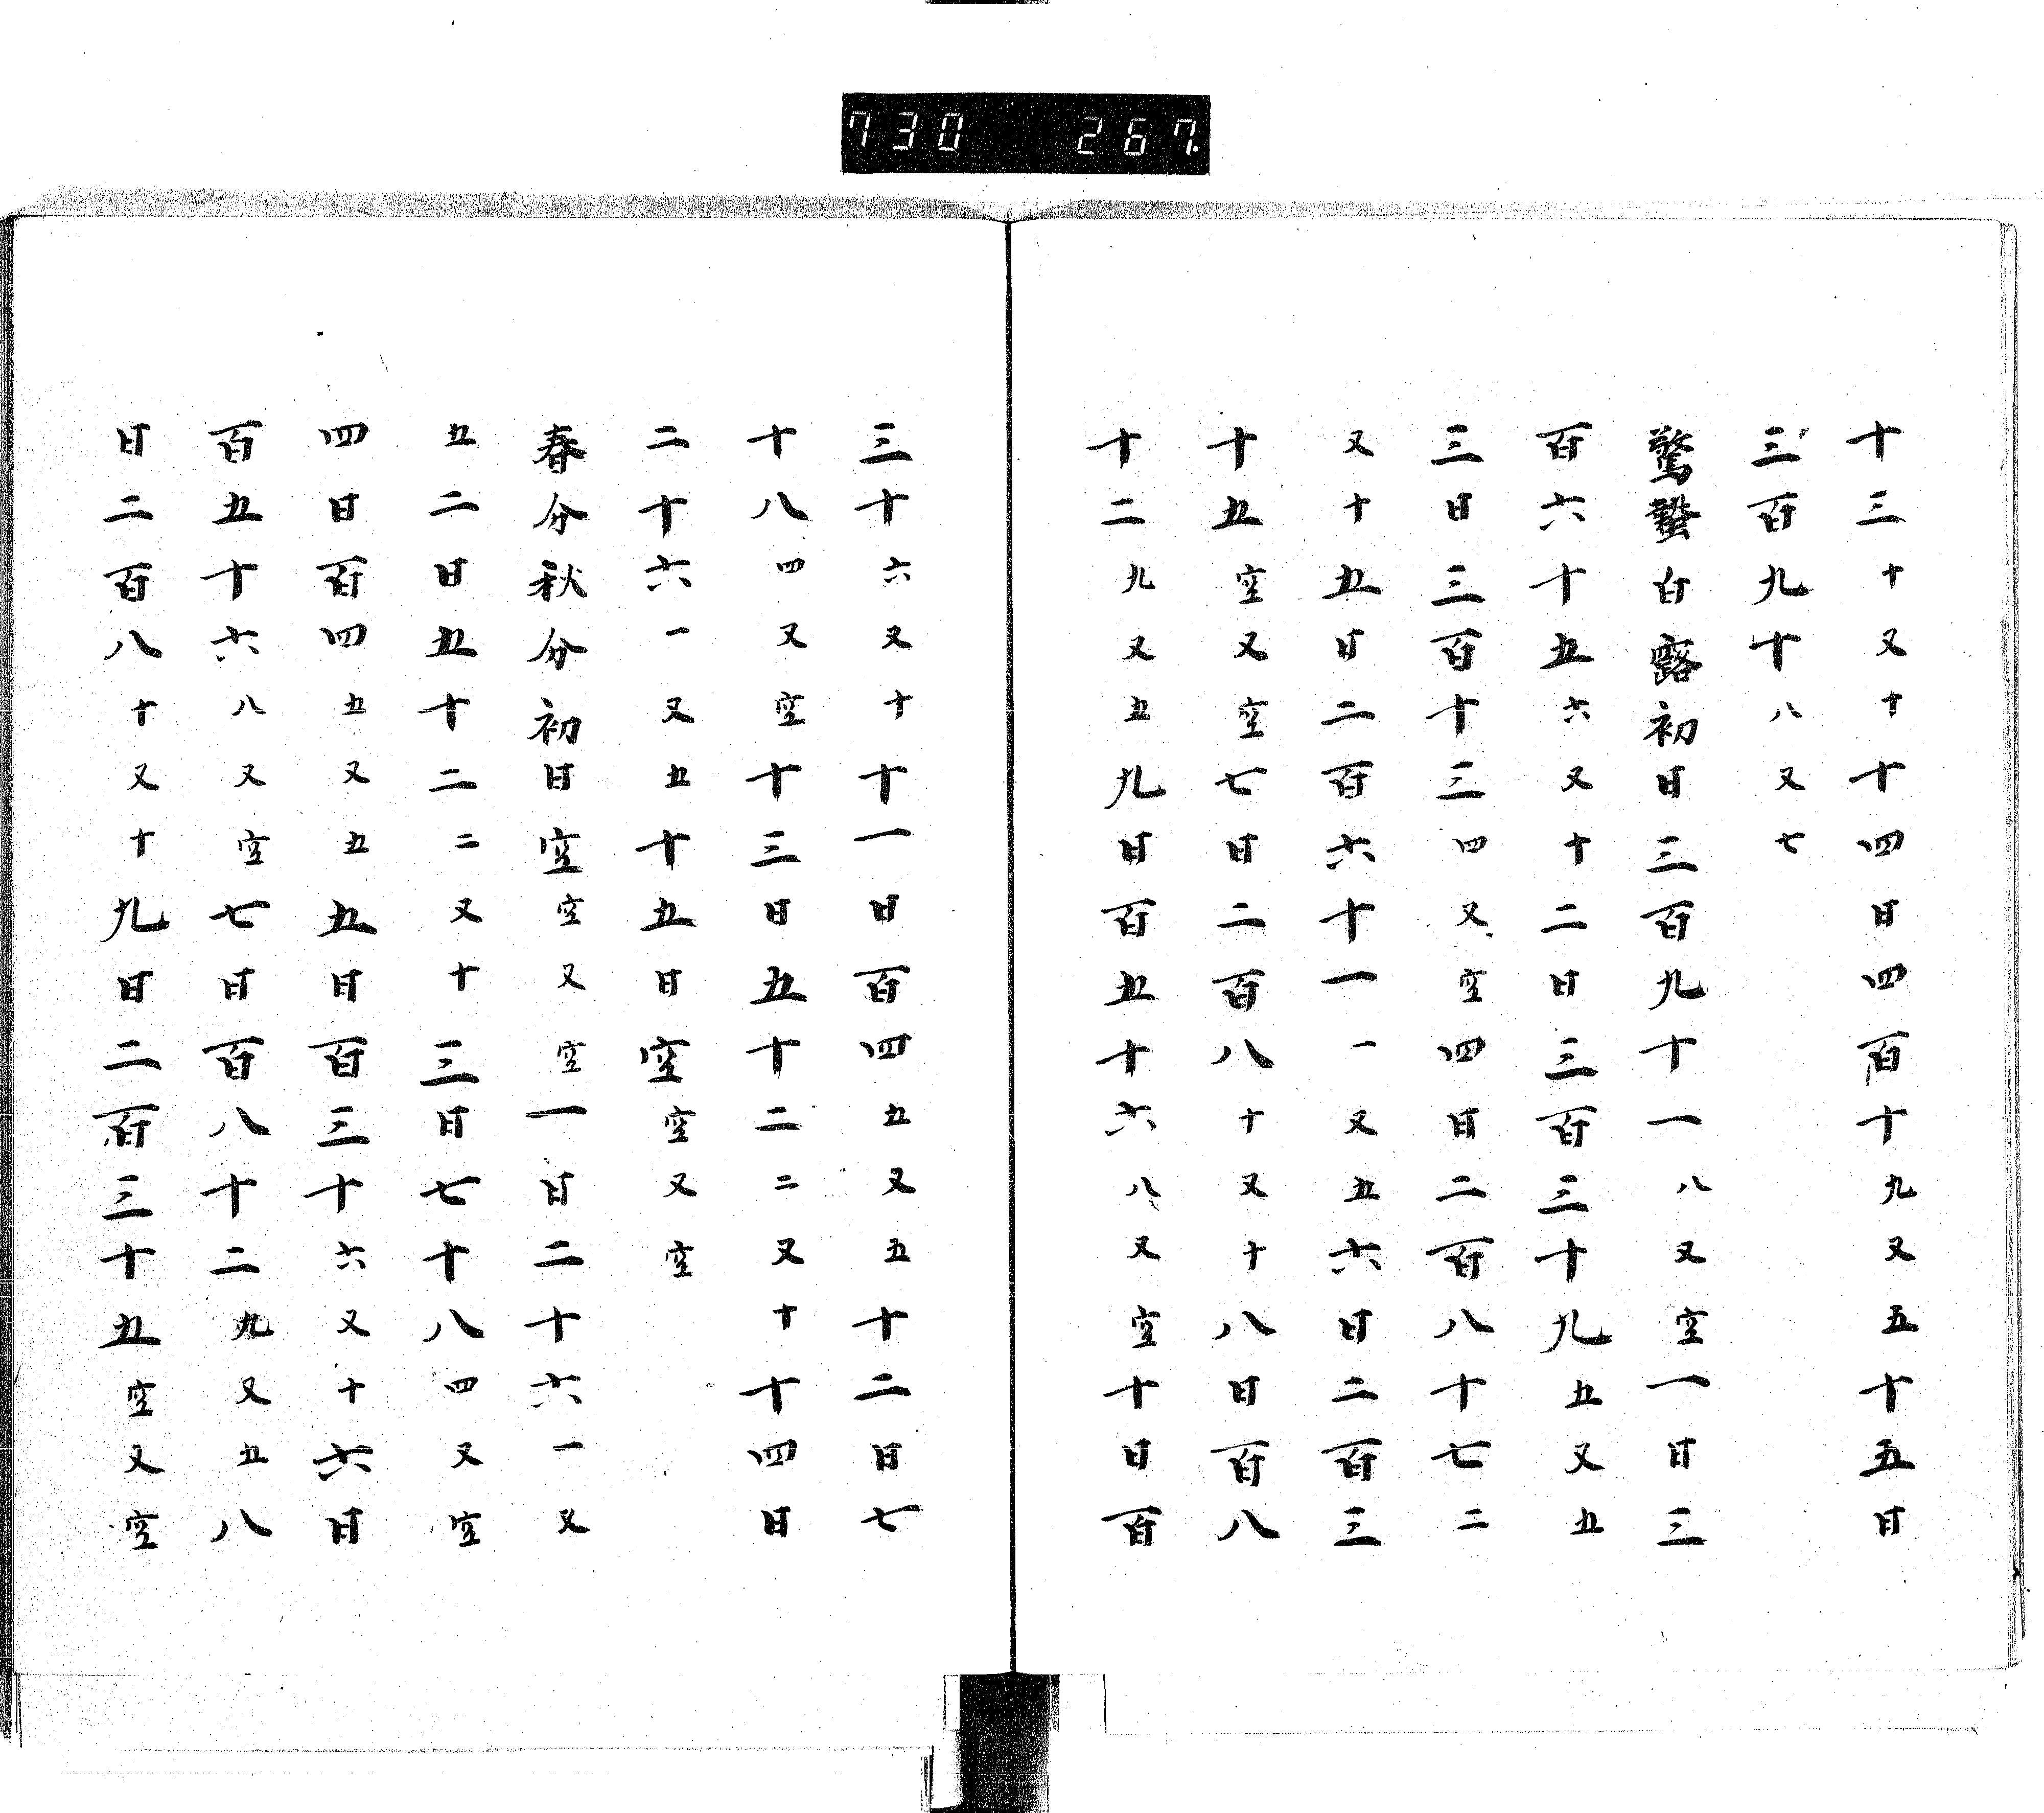 730 267.
十三十又十十四日四百十九又五十五日
三百九十八又七
驚蟄白露初日三百九十一八又空一日三
百六十五六又十二日三百三十九五又五
三日三百十三四又空四日二百八十七二
又十五日二百六十一一又五六日二百三
十五空又空七日二百八十又十八日百八
十二九又五九日百五十六八又空十日百
三十六又十十一日百四五又五十二日七
十八四又空十三日五十二二又十十四日
二十六一又五十五日空空又空
春分秋分初日空空又空一日二十六一又
五二日五十二二又十三日七十八四又空
四日百四五又五五日百三十六又十六日
百五十六八又空七日百八十二九又五八
日二百八十又十九日二百三十五空又空